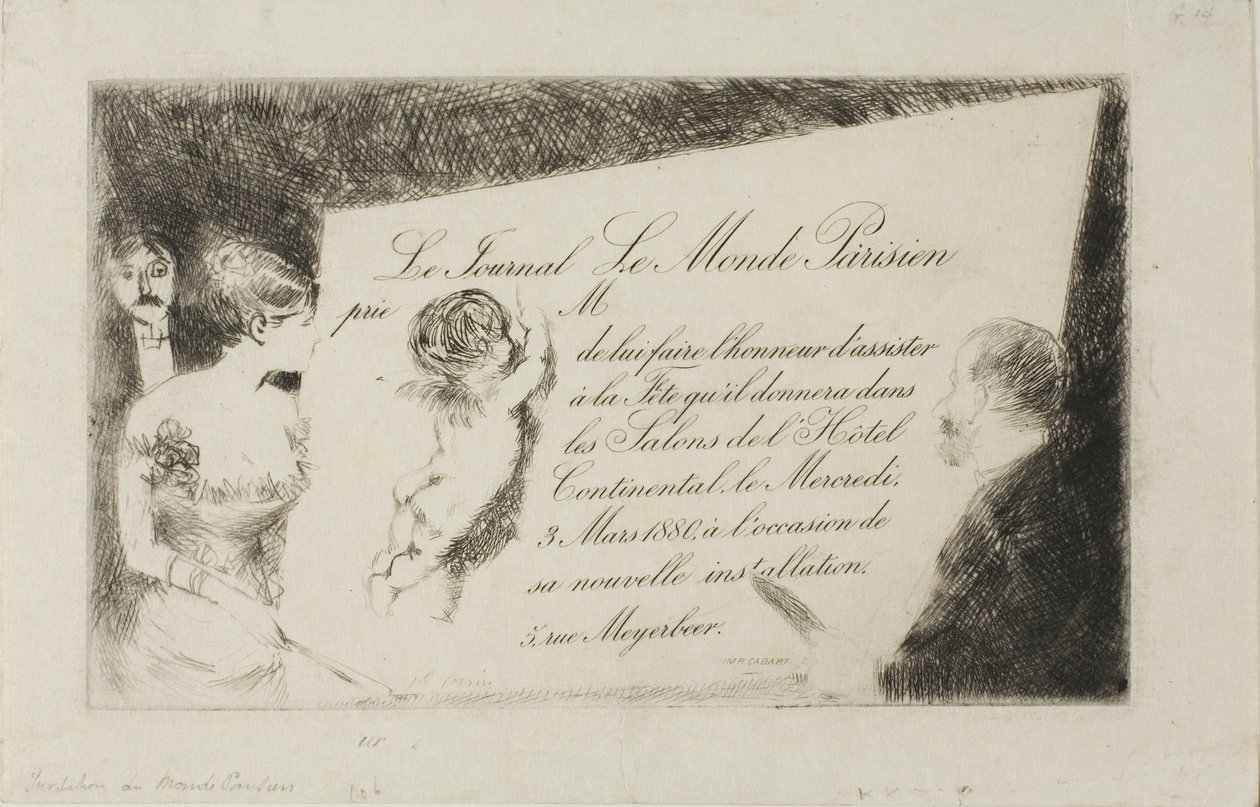 Le Journal Le Monde Parisien
prie M
de lui faire l'honneur d'assister
à la Fête qu'il donnera dans
les Salons de l'Hôtel
Continental, le Mercredi,
3 Mars 1880, à l'occasion de
sa nouvelle installation.
5, rue Meyerbeer.
IMP. CADART
du Monde Parisien
106